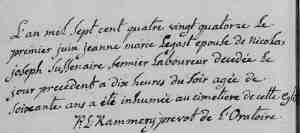 L'an mel sept cent quatre vingt quatorze le
premier juin jeanne marie Lepast epouse de Nicolas
joseph Sussenaire fermier Laboureur decedée le
jour precedent a dix heures du soir agée de
soixante ans a été inhumée au cimetiere de cette Egl
P. L. Rammery prevot de l'Oratoire